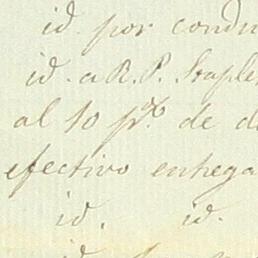 id. por condu
id. a R. P. Staple
al 10 p% de d
efectivo entrega
id. id.
id.